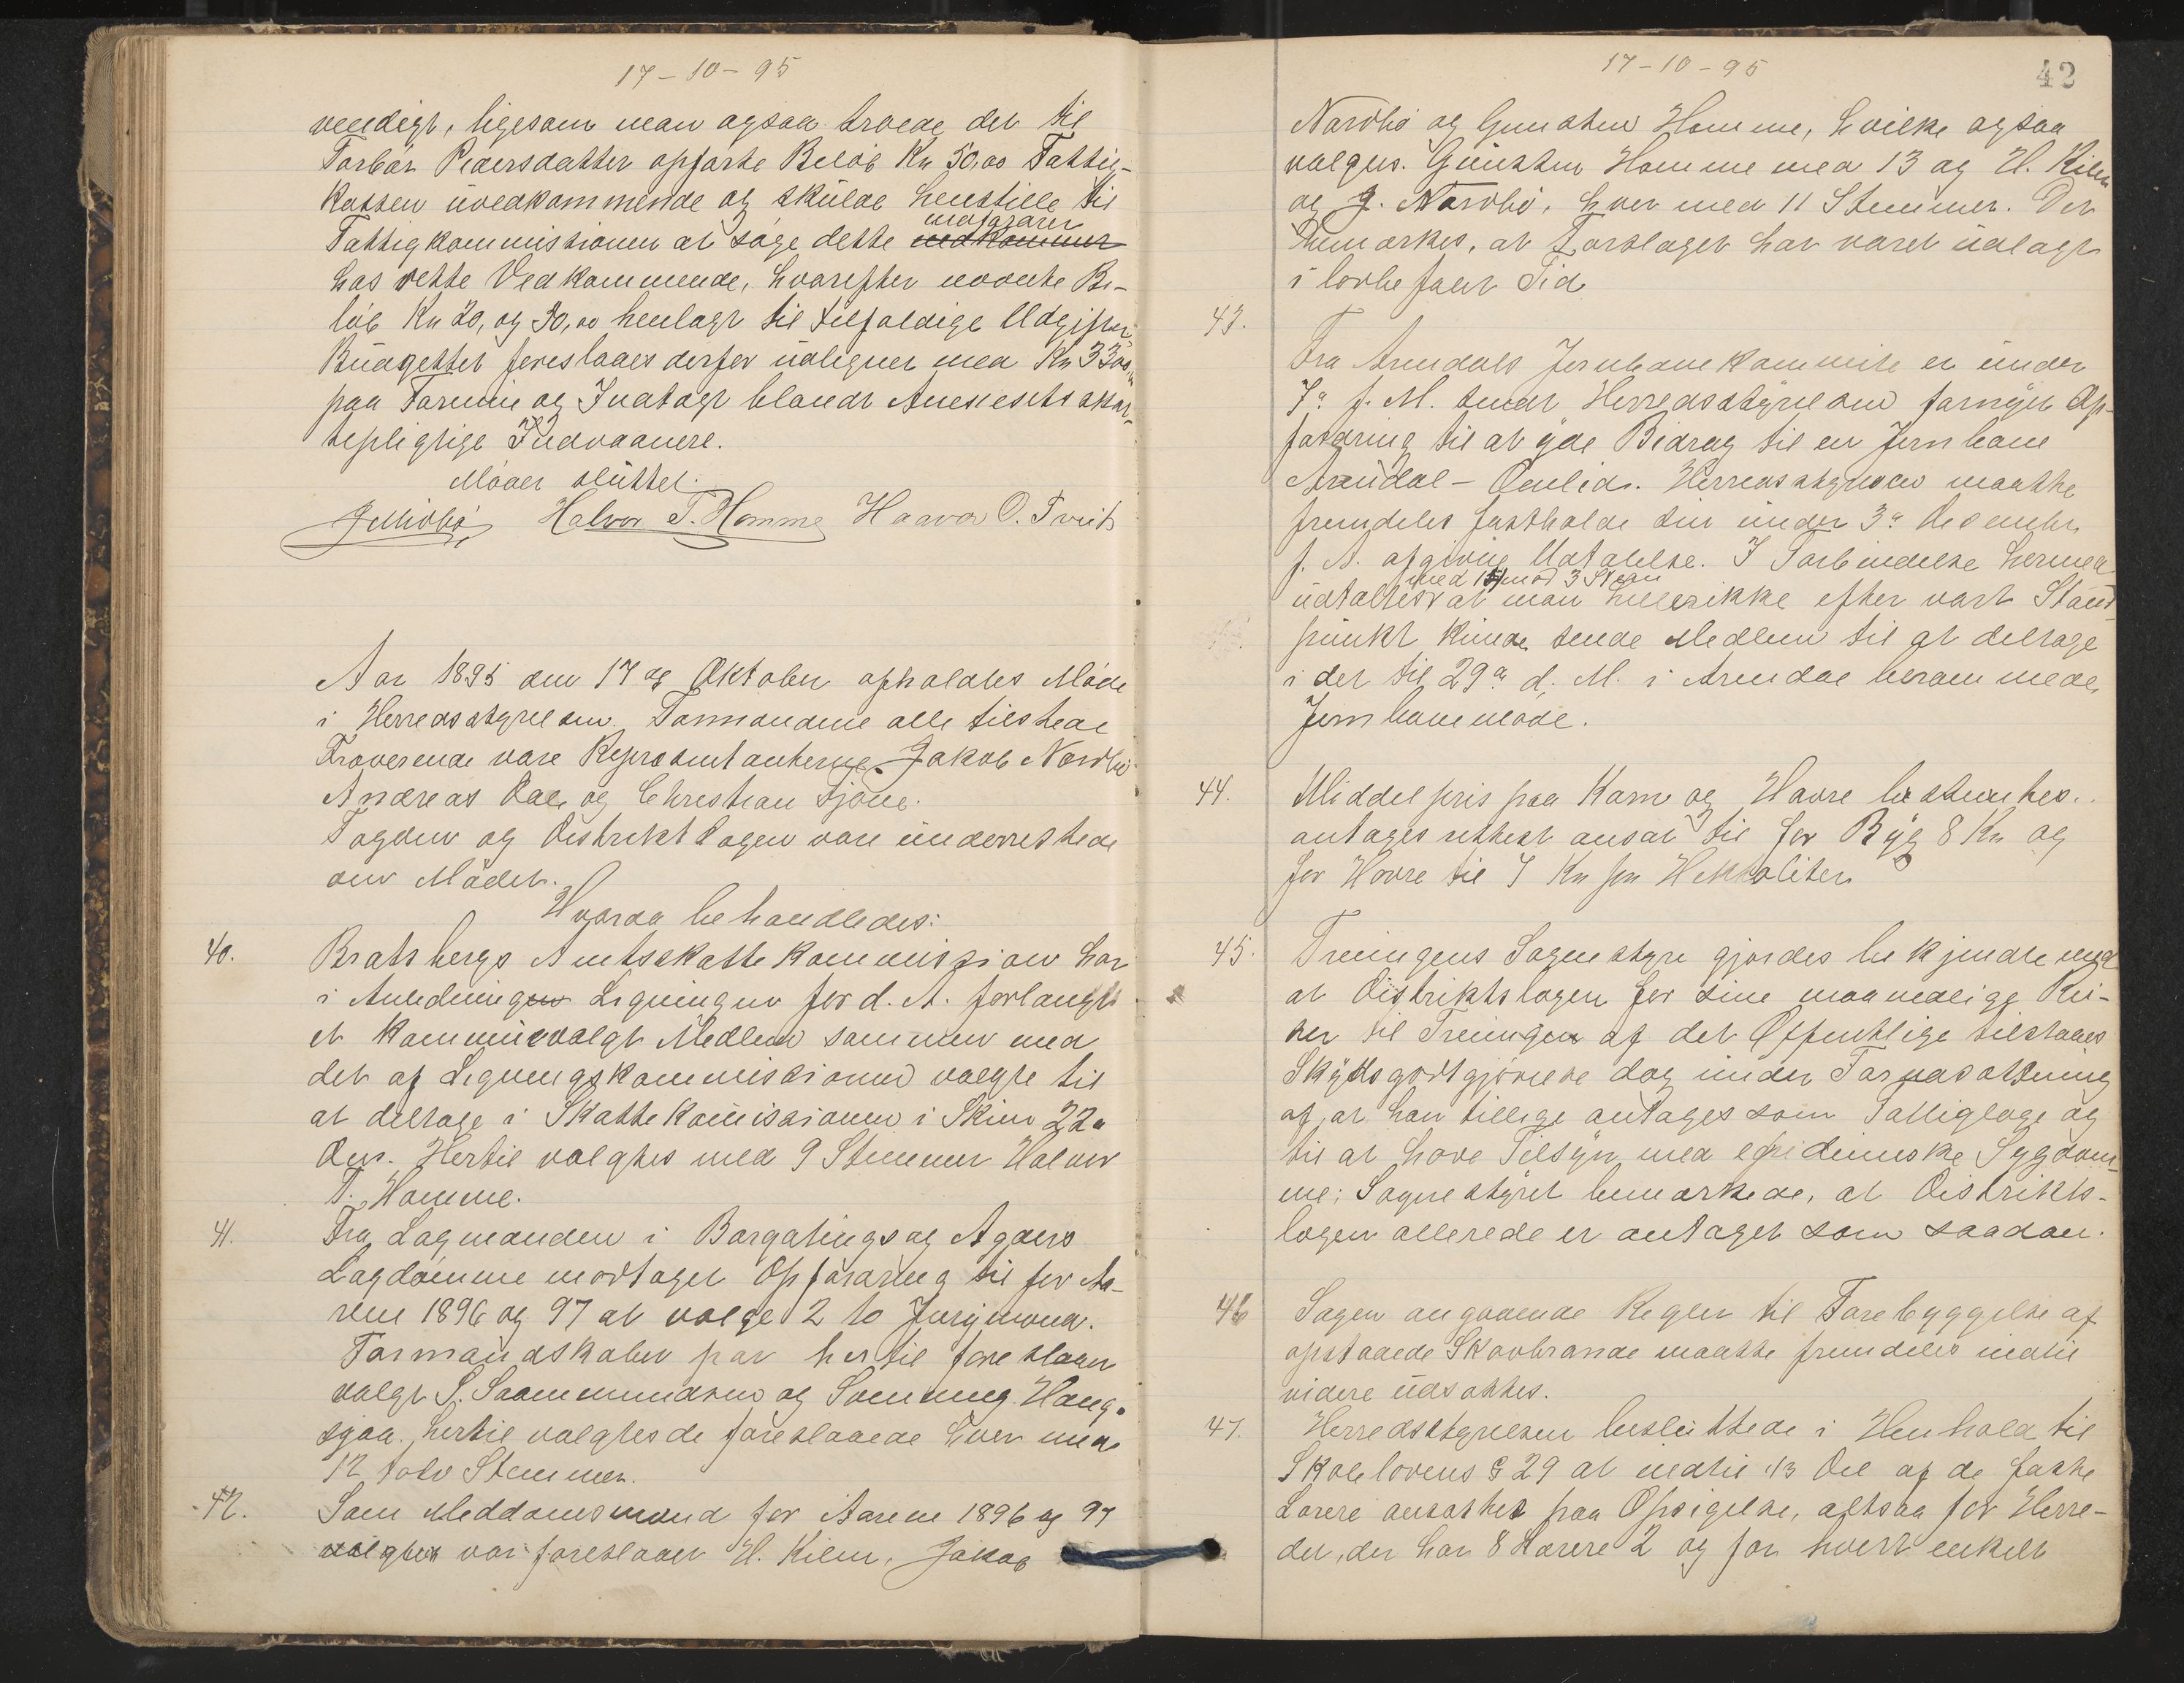 17-10-95
vendigt, ligesom man ogsaa troede det til
Torbör Pedersdatter opførte Beløb Kr 50,00 Fattig-
kassen uvedkommende og skulde henstille til
Fattigkommissionen at søge dette indfordret
hos rette Vedkommende, hvorefter nævnte Be-
løb Kr 20, og 30,00 henlagt til tilfældige Udgifter.
Budgettet foreslaaes derfor udlignet med Kr 3300,00
paa Formue og Indtægt blandt Annexets skat-
tepligtige Indvaanere.
Mødet sluttet.
Halvor T. Homme Haavor O. Tveit
Aar 1895 den 17de Oktober afholdtes Møde
i Herredsstyrelsen. Formændene alle tilstede
Fraværende vare Repræsentanterne Jakob Nordbø
Andreas Dale og Christian Tjöne.
Fogden og Distriktslægen vare underrettede
om Mødet.
Hvorda behandledes:
40.
Bratsbergs Amtsskattekommission har
i Anledning Ligningen for d. A. forlangt
et kommunevalgt Medlem sammen med
det af Ligningskommissionen valgte til
at deltage i Skattekommissionen i Skien 22de
Ds. Hertil valgtes med 9 Stemmer Halvor
T. Homme.
41.
Fra Lagmanden i Borgatings og Agders
Lagdømme modtaget Opfordring til for Aa-
rene 1896 og 97 at vælge 2 to Jurymænd.
Formandskabet har hertil foreslaaet
valgt S. Saammundsen og Sonnung Haug-
sjaa. hertil valgtes de foreslaaede hver med
12 tolv Stemmer.
42.
Som Meddomsmænd for Aarene 1896 og 97
valgtes var foreslaaet H. Kilen, Jakob
17-10-95
42
Nordbø og Gunsten Homme, hvilke ogsaa
valgtes. Gunsten Homme med 13 og H. Kilen
og J. Nordbø, hver med 11 Stemmer. Det
bemærkes, at Forslaget har været udlagt
i lovbefalet Tid
43.
Fra Arendals Jernbanekomite er under
7de f. M. sendt Herredsstyrelsen fornyet Op-
fordring til at yde Bidrag til en Jernbane
Arendal - Omlid. Herredsstyrelsen maatte
fremdeles fastholde sin under 3de Desember
f. A. afgivne Udtalelse. I Forbindelse hermed
med 15 mod 3 Stem
udtaltes at man hellerikke efter vort Stand-
punkt kunde sende Medlem til at deltage
i det til 29de d. M. i Arendal berammede
Jernbanemøde.
44.
Middelpris paa Korn og Havre bestemtes..
antages rettest ansat til for Byg 8 Kr og
for Havre til 7 Kr pr Hektoliter
45.
Treungens Sognestyre gjordes bekjendt med
at Distriktslægen for sine maanedlige Rei-
ser til Treungen af det Offentlige tilstaaes
Skydsgodtgjørelse dog under Forudsætning
af, at han tillige antages som Fattiglæge og
til at have Tilsyn med epidemiske Sygdom-
me; Sognestyret bemærkede, at Distrikts-
lægen allerede er antaget som saadan.
46
Sagen angaaende Regler til Forebyggelse af
opstaaede Skovbrande maatte fremdeles indtil
videre udsættes.
47.
Herredsstyrelsen besluttede i Henhold til
Skolelovens § 29 at indtil 1/3 Del af de faste
Lærere ansættes paa Opsigelse, altsaa for Herre-
det, der har 8 Lærere 2 og for hvert enkelt